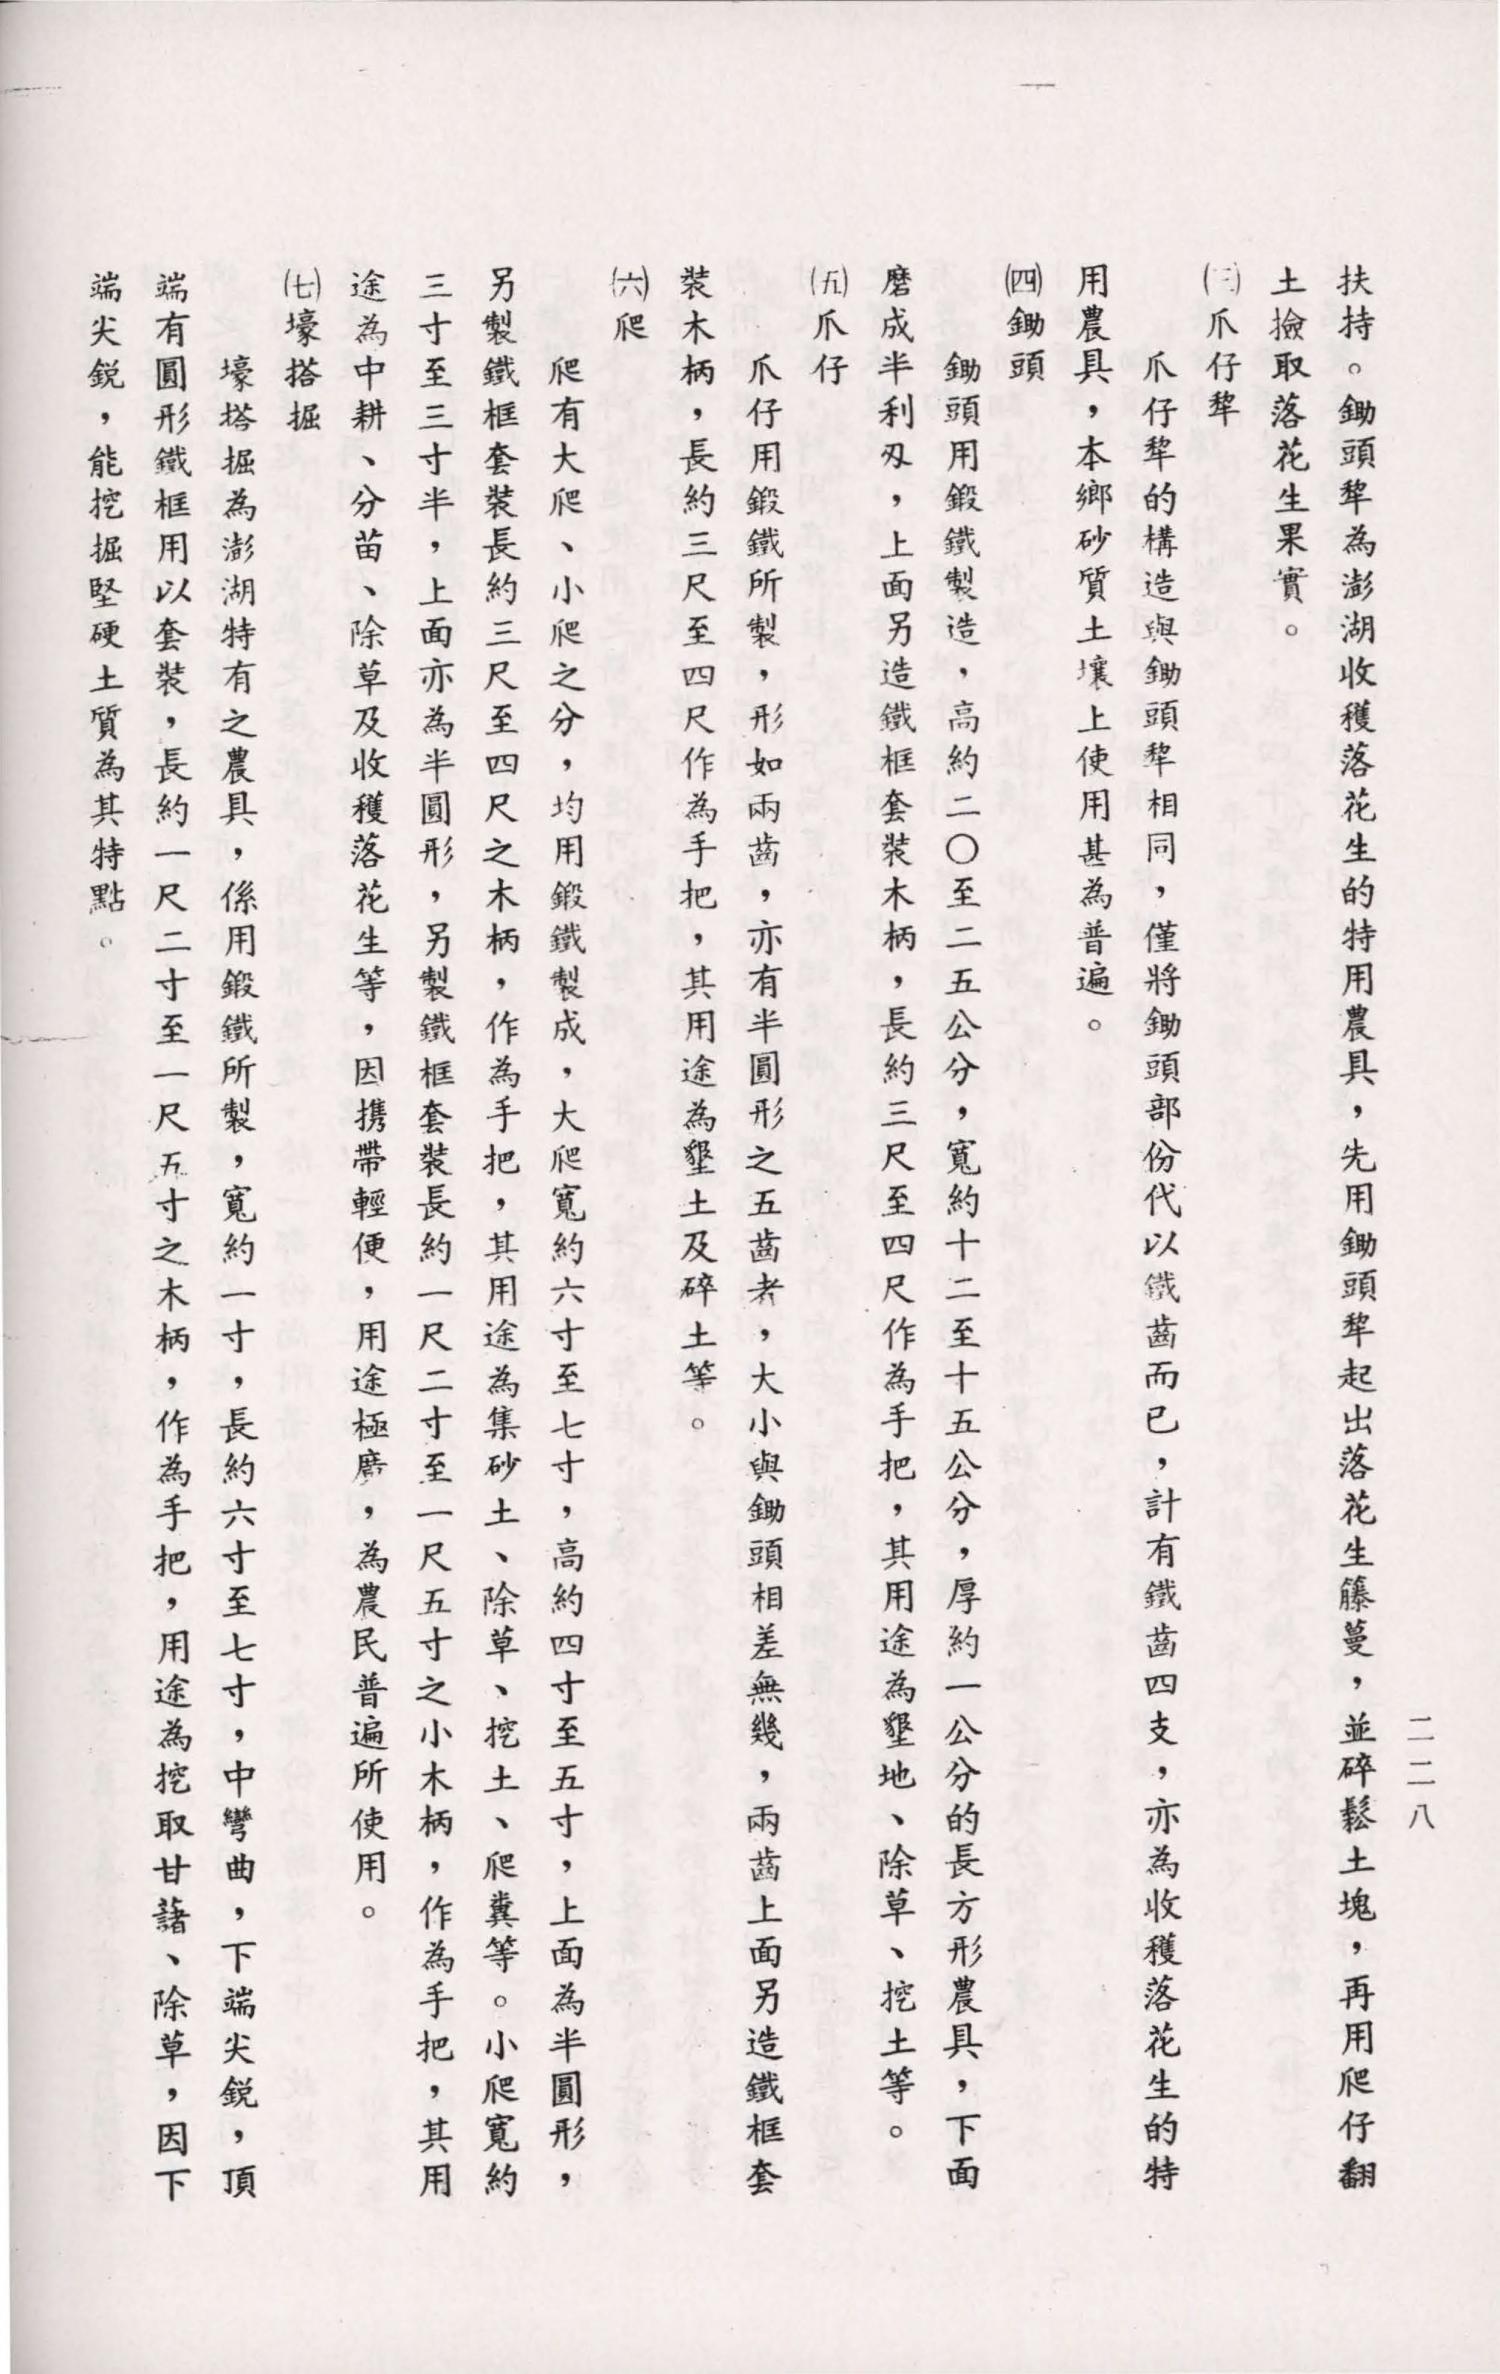 二二八
扶持。鋤頭犂為澎湖收穫落花生的特用農具，先用鋤頭犂起出落花生籐蔓，並碎鬆土塊，再用爬仔翻
土撿取落花生果實。
㈢爪仔犂
爪仔犂的構造與鋤頭犂相同，僅將鋤頭部份代以鐵齒而已，計有鐵齒四支，亦為收穫落花生的特
用農具，本鄉砂質土壤上使用甚為普遍。
㈣鋤頭
鋤頭用鍛鐵製造，高約二〇至二五公分，寬約十二至十五公分，厚約一公分的長方形農具，下面
磨成半利刄，上面另造鐵框套裝木柄，長約三尺至四尺作為手把，其用途為墾地、除草、挖土等。
㈤爪仔
爪仔用鍛鐵所製，形如兩齒，亦有半圓形之五齒者，大小與鋤頭相差無幾，兩齒上面另造鐵框套
裝木柄，長約三尺至四尺作為手把，其用途為墾土及碎土等。
㈥爬
爬有大爬、小爬之分，均用鍛鐵製成，大爬寬約六寸至七寸，高約四寸至五寸，上面為半圓形，
另製鐵框套裝長約三尺至四尺之木柄，作為手把，其用途為集砂土、除草、挖土、爬糞等。小爬寬約
三寸至三寸半，上面亦為半圓形，另製鐵框套裝長約一尺二寸至一尺五寸之小木柄，作為手把，其用
途為中耕、分苗、除草及收穫落花生等，因携帶輕便，用途極廣，為農民普遍所使用。
㈦壕搭掘
壕塔掘為澎湖特有之農具，係用鍛鐵所製，寬約一寸，長約六寸至七寸，中彎曲，下端尖銳，頂
端有圓形鐵框用以套裝，長約一尺二寸至一尺五寸之木柄，作為手把，用途為挖取甘藷、除草，因下
端尖銳，能挖掘堅硬土質為其特點。